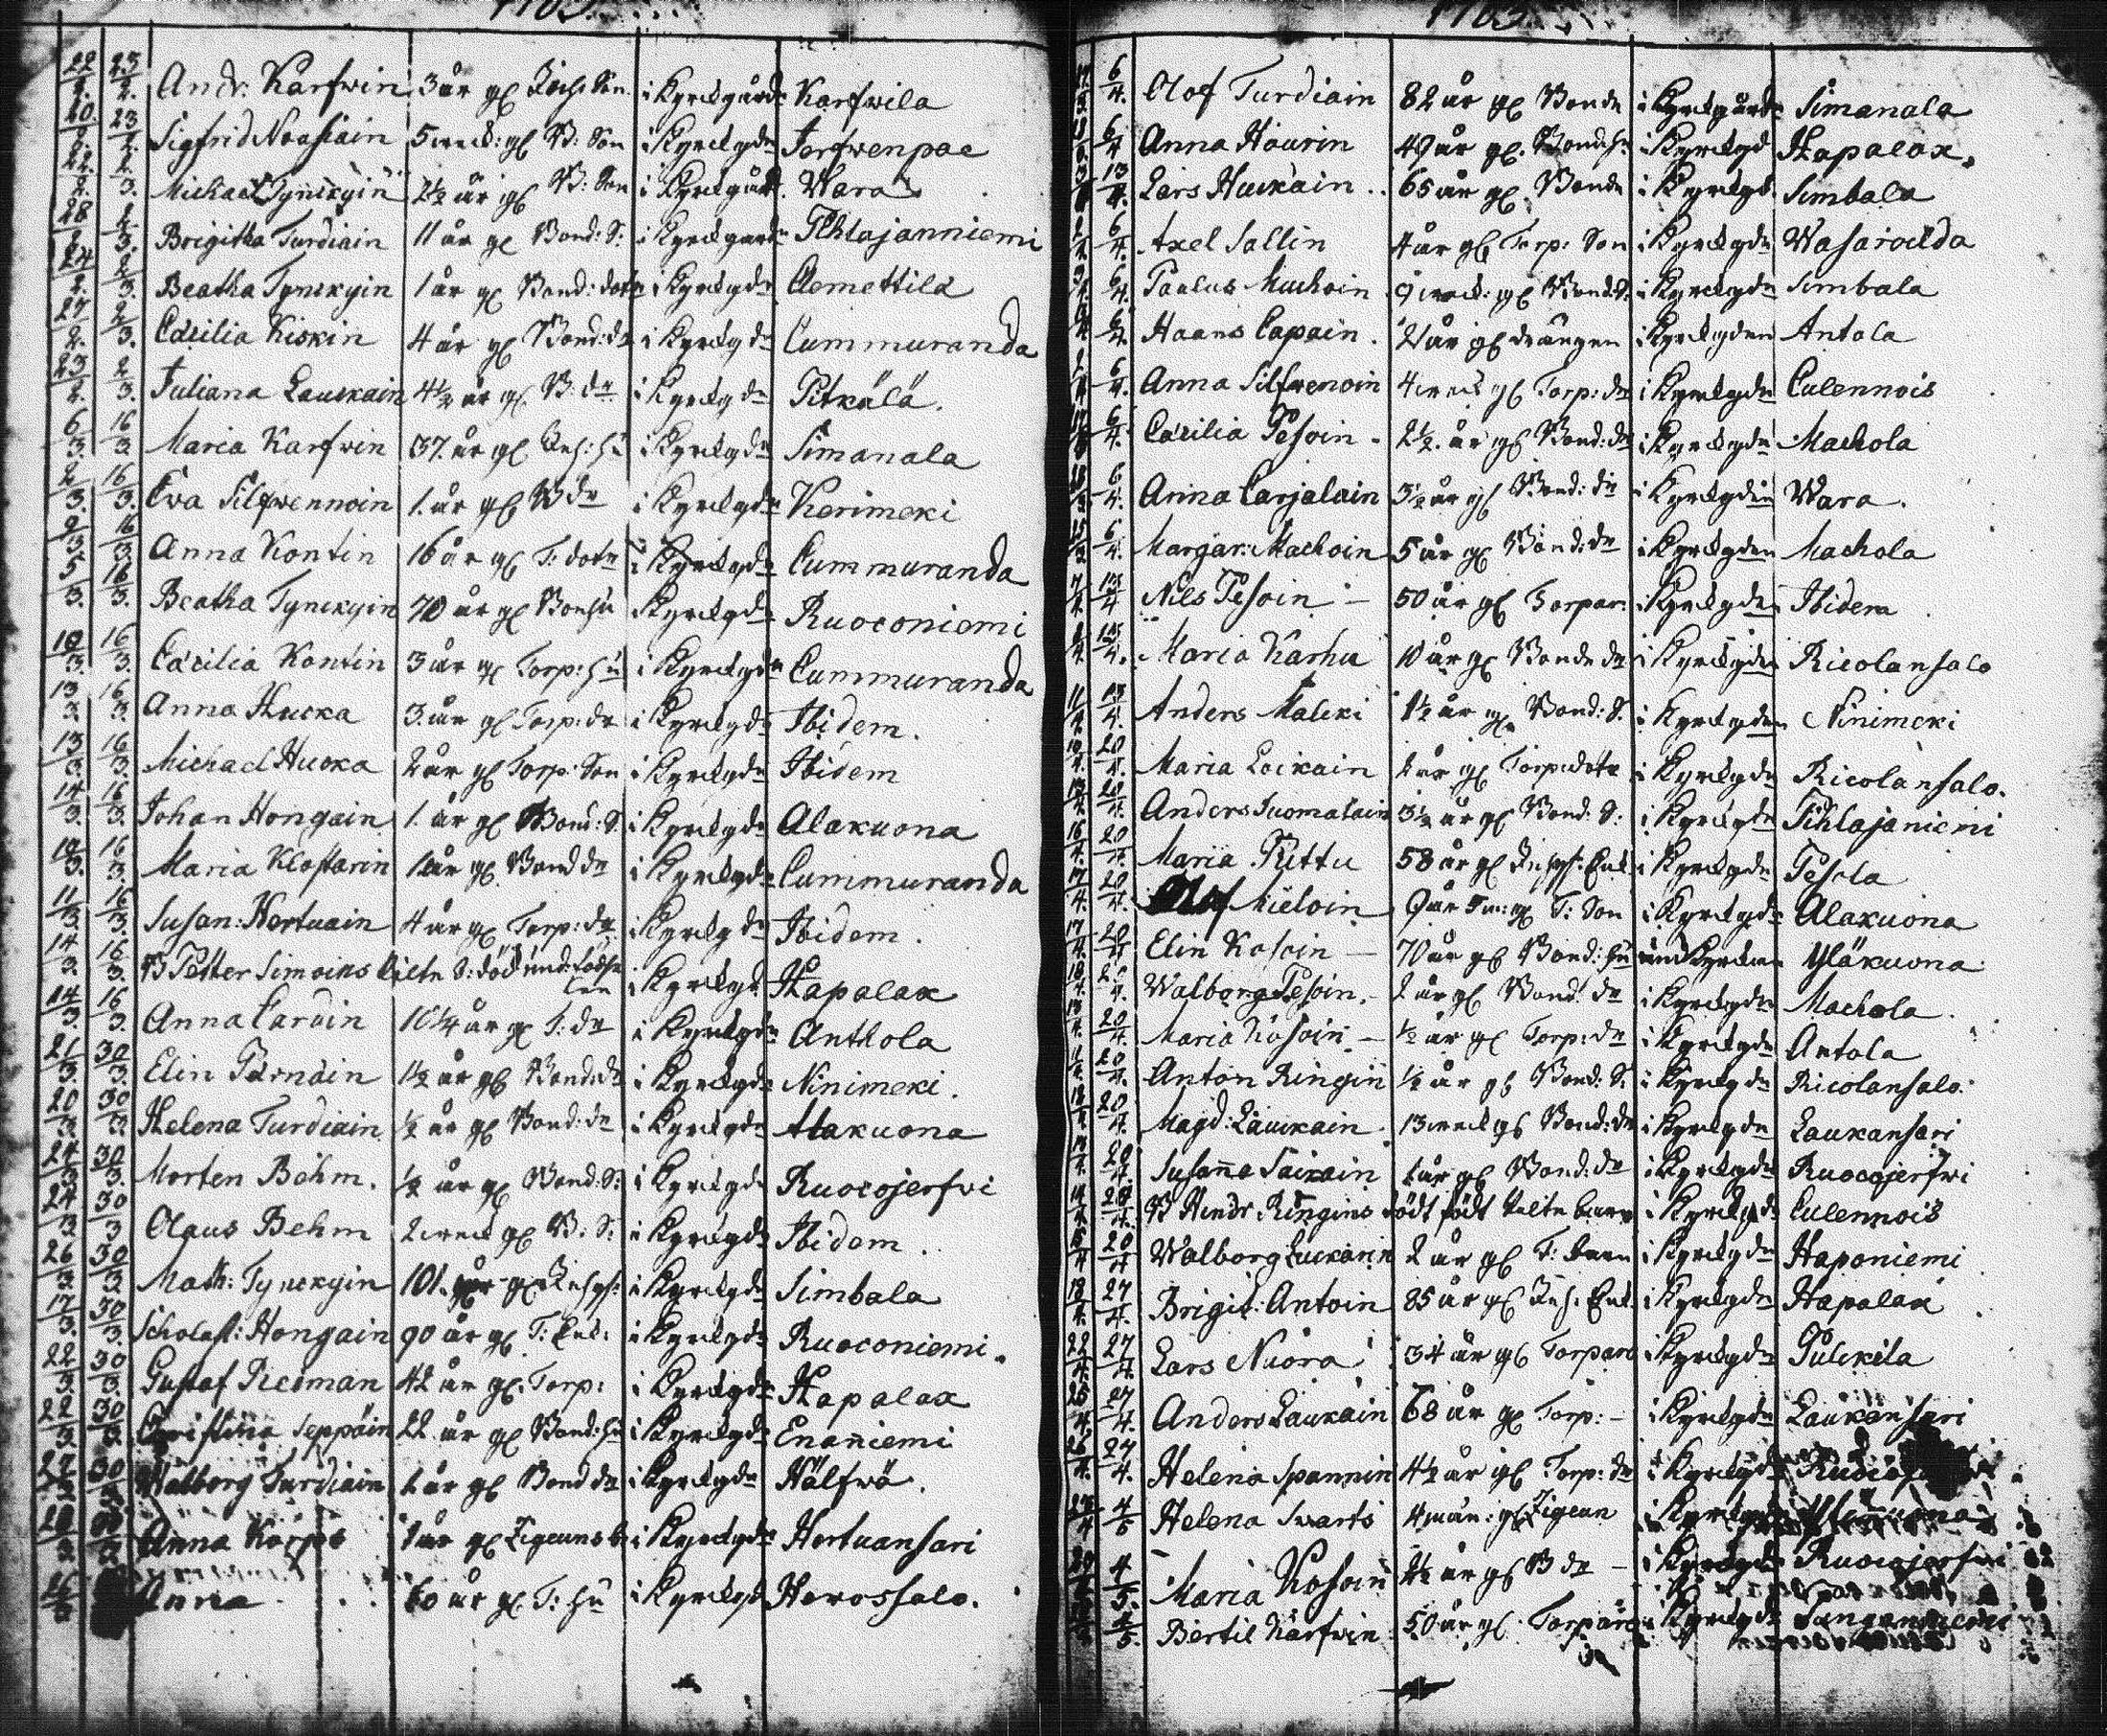 1763.
22/2. 23/2. Andr. Karfwin 3 år gl. Inhs Son i Kyrckgårdn Karfwila
20/2. 23/2. Sigfrid Nousiain 5 weck: gl B: Son i Kyrckgdn Jerfwenpae
22/2. 2/3. Michael Tynckyin 2½ år gl B: Son i Kyrckgård Wara
28/2. 2/3. Brigitha Turdiain 11 år gl Bond: S: i Kyrckgardn Pehlajanniemi
24/2. 2/3. Beatha Tynckyin 1 år gl Bond: dottr i Kyrckgdn Clemettilä
27/2. 2/3. Cæcilia Kiskin 4 år gl Bond: dr i Kyrckgdn Cummuranda
23/2. 2/3. Juliana Lauckain 4½ år gl B: dr i Kyrckgdn Pitkälä.
6/3. 16/3 Maria Karfwin 37. år gl Inh: hu i Kyrckgdn Simanala
2/3. 16/3. Eva Silfwennoin 1. år gl B dr i Kyrckgdn Kerimeki
2/3 16/3 Anna Kontin 16 år gl T: dottr i Kyrckgdn Cummuranda
5/3. 16/3. Beatha Tynckyin 70 år gl Bonhu Kyrckgdn Ruoconiemi
10/3. 16/3. Cæcilia Kontin 3 år gl Torp: hu i Kyrckgdn Cummuranda
13/3. 16/3. Anna Hucka 3. år gl Torp: dr i Kyrckgdn Ibidem.
13/3. 16/3. Michael Hucka 2 år gl Torp: Son i Kyrckgdn Ibidem
14/3. 16/3. Johan Hongain 1. år gl Bond: S. i Kyrckgdn Alakuona
10/3. 16/3. Maria Klostarin 1 år gl Bond dr i Kyrckgdn Cummuranda
11/3. 16/3. Susan: Hertuain 4 år gl Torp: dr i Kyrckgdn Ibidem.
14/3. 16/3. B Petter Simoins lilte S: död und: födsellen i Kyrckgd Hapalax
14/3. 16/3. Anna Carvin 10¼ år gl T: dr i Kyrckgdn Anthola
21/3. 30/3. Elin Pärnäin 1½ år gl Bond dr i Kyrckgdn Ninimeki.
20/3. 30/3. Helena Turdiain ½ år gl Bond: dr i Kyrckgdn Alakuona
24/3 30/3. Morten Böhm. ½ år gl Bond: S: i Kyrckgdn Ruocojerfwi
24/3 30/3 Olaus Behm 2 weck gl B: S: i Kyrckgdn Ibidem.
26/3. 30/3 Math: Tynckyin 101. år gl Inhys: i Kyrckgdn Simbala
17/3. 30/3. Scholast: Hongain 90 år gl T: Enk: i Kyrckgdn Ruoconiemi.
22/3. 30/3. Gustaf Redman 42 år gl Torp: i Kyrckgdn Hapalax
22/3. 30/3. Christina Seppäin 22 år gl Bond: hu i Kyrckgdn Enäniemi
27/3 30/3 Walborg Turdiain 1 år gl Bond dr i Kyrckgdn Hälfwä.
Anna Karpe 1 år gl Zigeuns b i Kyrckgdn Hertuansari
Anna 60 år gl T: hu i Kyrckgd Herossalo.
1763.
6/4. Olof Turdiain 82 år gl Bonde i Kyrckgårdn Simanala
6/4 Anna Häurin 49 år gl. Bond: hu i Kyrckgd Hapalax.
13/4. Lars Huckain 65 år gl Bonde i Kyrckgd Simbala
6/4. Axel Sallin 4 år gl Torp: Son i Kyrckgdn Wasarackda
6/4. Paulus Machoin 9 weck: gl Bond: S. i Kyrckgdn Simbala
6/4. Haans Capain. 21 år gl drängen i Kyrckgden Antola
6/4. Anna Silfwenoin 4 weck gl Torp: dr i Kyrckgdn Culennois
6/4. Cæcilia Pesoin 2½ år gl Bond: dr i Kyrckgdn Machola
6/4. Anna Carjalain 3½ år gl Bond: dr i Kyrckgdn Wara.
6/4. Margar: Machoin 5 år gl Bond: dr i Kyrckgdn Machola
7/4. 13/4 Nils Pesoin 50 år gl Torpar: i Kyrckgden Ibidem
13/4. Maria Karhu 10 år gl Bonde dr i Kyrckgdn Ricolansalo
11/4. 13/4. Anders Malcki 1½ år gl Bond: S. i Kyrckgdn Ninimeki
20/4. Maria Loickain 2 år gl Torp: dottr i Kyrckgdn Ricolansalo.
20/4. Anders Suomalain 3½ år gl Bond. S: i Kyrckgdn Pihlajaniemi
16/4. 20/4. Maria Pittu 58 år gl Inhys: Enk i Kyrckgdn Pesola
17/4. 20/4. Olof Mieloin 9 år gl T: Son i Kyrckgdn Alakuona
17/4. 20/4 Elin Kosoin 70 år gl Bond: hu und Kyrckan Yläkuona
Walborg Pesoin. 2 år gl Bond: dr i Kyrckgdn Machola.
20/4. Maria Kosoin ½ år gl Torp: dr i Kyrckgdn Antola
20/4. Anton Ringin ½ år gl Bond: S. i Kyrckgdn Ricolansalo.
20/4. Magd: Lauckain 13 weck gl Bond: dr i Kyrckgdn Laukansari
20/4. Susanna Saikain 1 år gl Bond: dr i Kyrckgdn Ruocojerfwi
20/4. B Hindr. Ringins dödt födt lilte barn i Kyrckgdn Culennois
20/4 Walborg Luckarin 2 år gl T: barn i Kyrckgdn Haponiemi
27/4. Brigit: Antoin 85 år gl Inh: Enk. i Kyrckgdn Hapalax
22/4. 27/4. Lars Nuora 34 år gl Torpare i Kyrckgdn Pulckila
25/4. 27/4. Anders Laukain 68 år gl Torp: i Kyrckgdn Laukansari
26/4. 27/4. Helena Spannin 4½ år gl Torp: dr i Kyrckgdn
4/5 Helena Swarts 4 mån: gl Zigeun i Kyrckgdn
4/5. Maria Kosoin 2½ år gl B dr i Kyrckgdn Ruocojerfwi
4/5. Bertil Karfwin 50 år gl. Torpare i Kyrckgdn